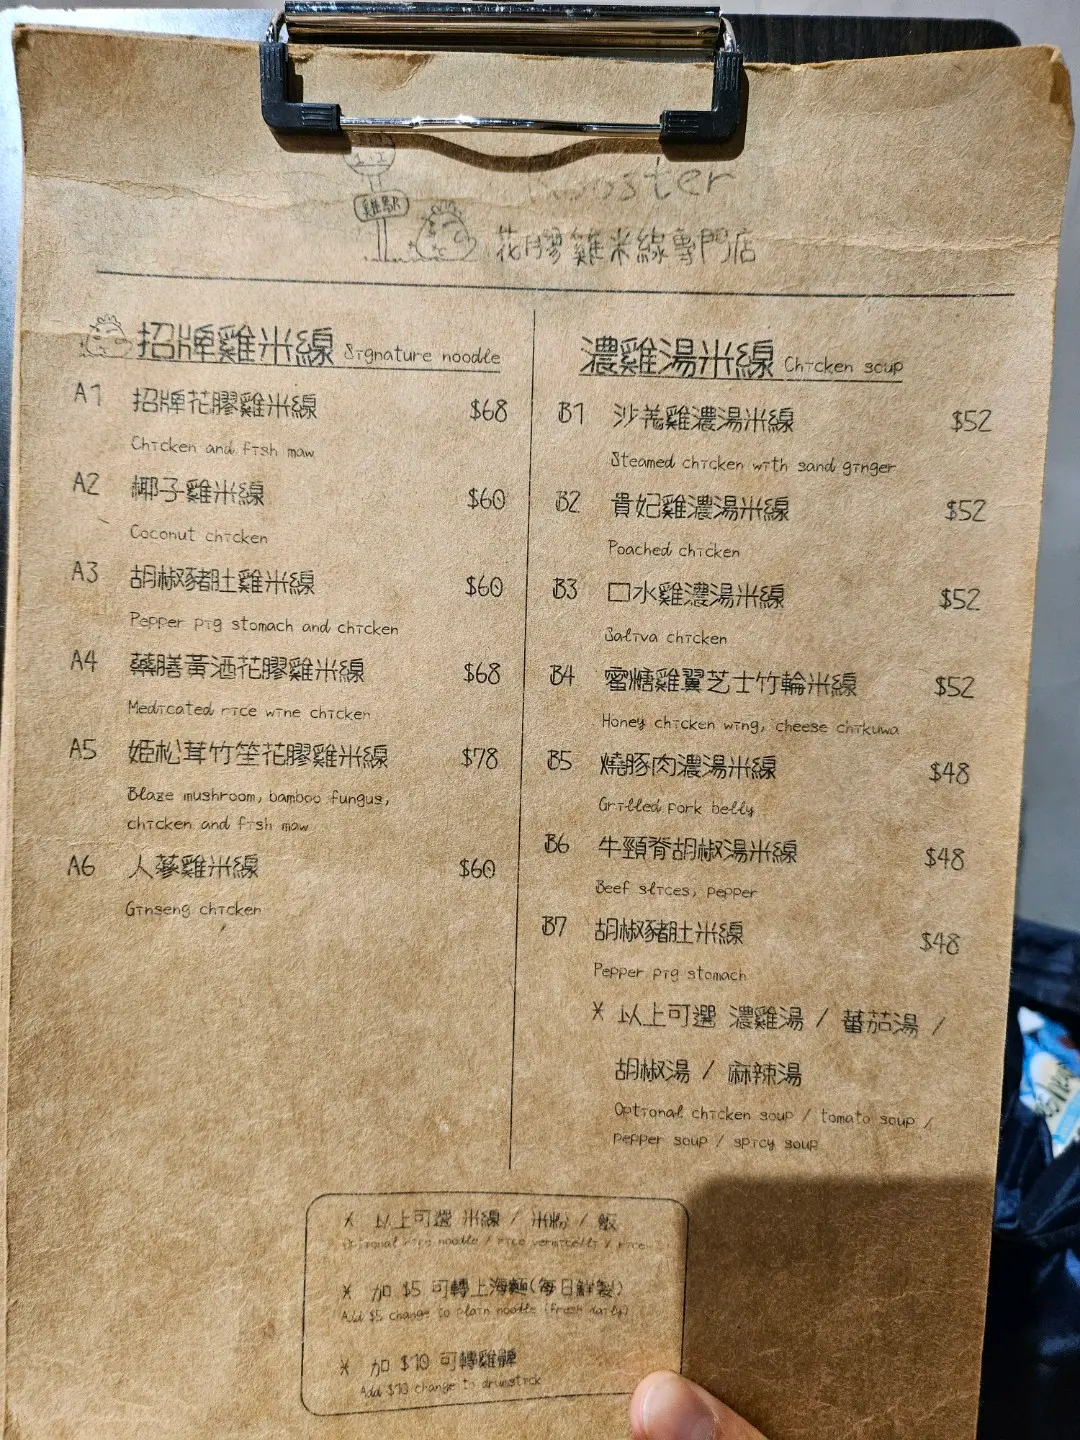 Rooster
雞駅
花膠雞米線專門店
招牌雞米線 Signature noodle
A1 招牌花膠雞米線 $68
Chicken and fish maw
A2 椰子雞米線 $60
Coconut chicken
A3 胡椒豬肚雞米線 $60
Pepper pig stomach and chicken
A4 藥膳黃酒花膠雞米線 $68
Medicated rice wine chicken
A5 姫松茸竹笙花膠雞米線 $78
Blaze mushroom, bamboo fungus,
chicken and fish maw
A6 人蔘雞米線 $60
Ginseng chicken
濃雞湯米線 Chicken soup
B1 沙羗雞濃湯米線 $52
Steamed chicken with sand ginger
B2 貴妃雞濃湯米線 $52
Poached chicken
B3 口水雞濃湯米線 $52
Saliva chicken
B4 蜜糖雞翼芝士竹輪米線 $52
Honey chicken wing, cheese chikuwa
B5 燒豚肉濃湯米線 $48
Grilled pork belly
B6 牛頸脊胡椒湯米線 $48
Beef slices, pepper
B7 胡椒豬肚米線 $48
Pepper pig stomach
* 以上可選 濃雞湯 / 蕃茄湯 /
胡椒湯 / 麻辣湯
Optional chicken soup / tomato soup /
pepper soup / spicy soup
* 以上可選 米線 / 米粉 / 飯
Optional rice noodle / rice vermicelli / rice
* 加 $5 可轉上海麵(每日鮮製)
Add $5 change to plain noodle (fresh daily)
* 加 $10 可轉雞髀
Add $10 change to drumstick